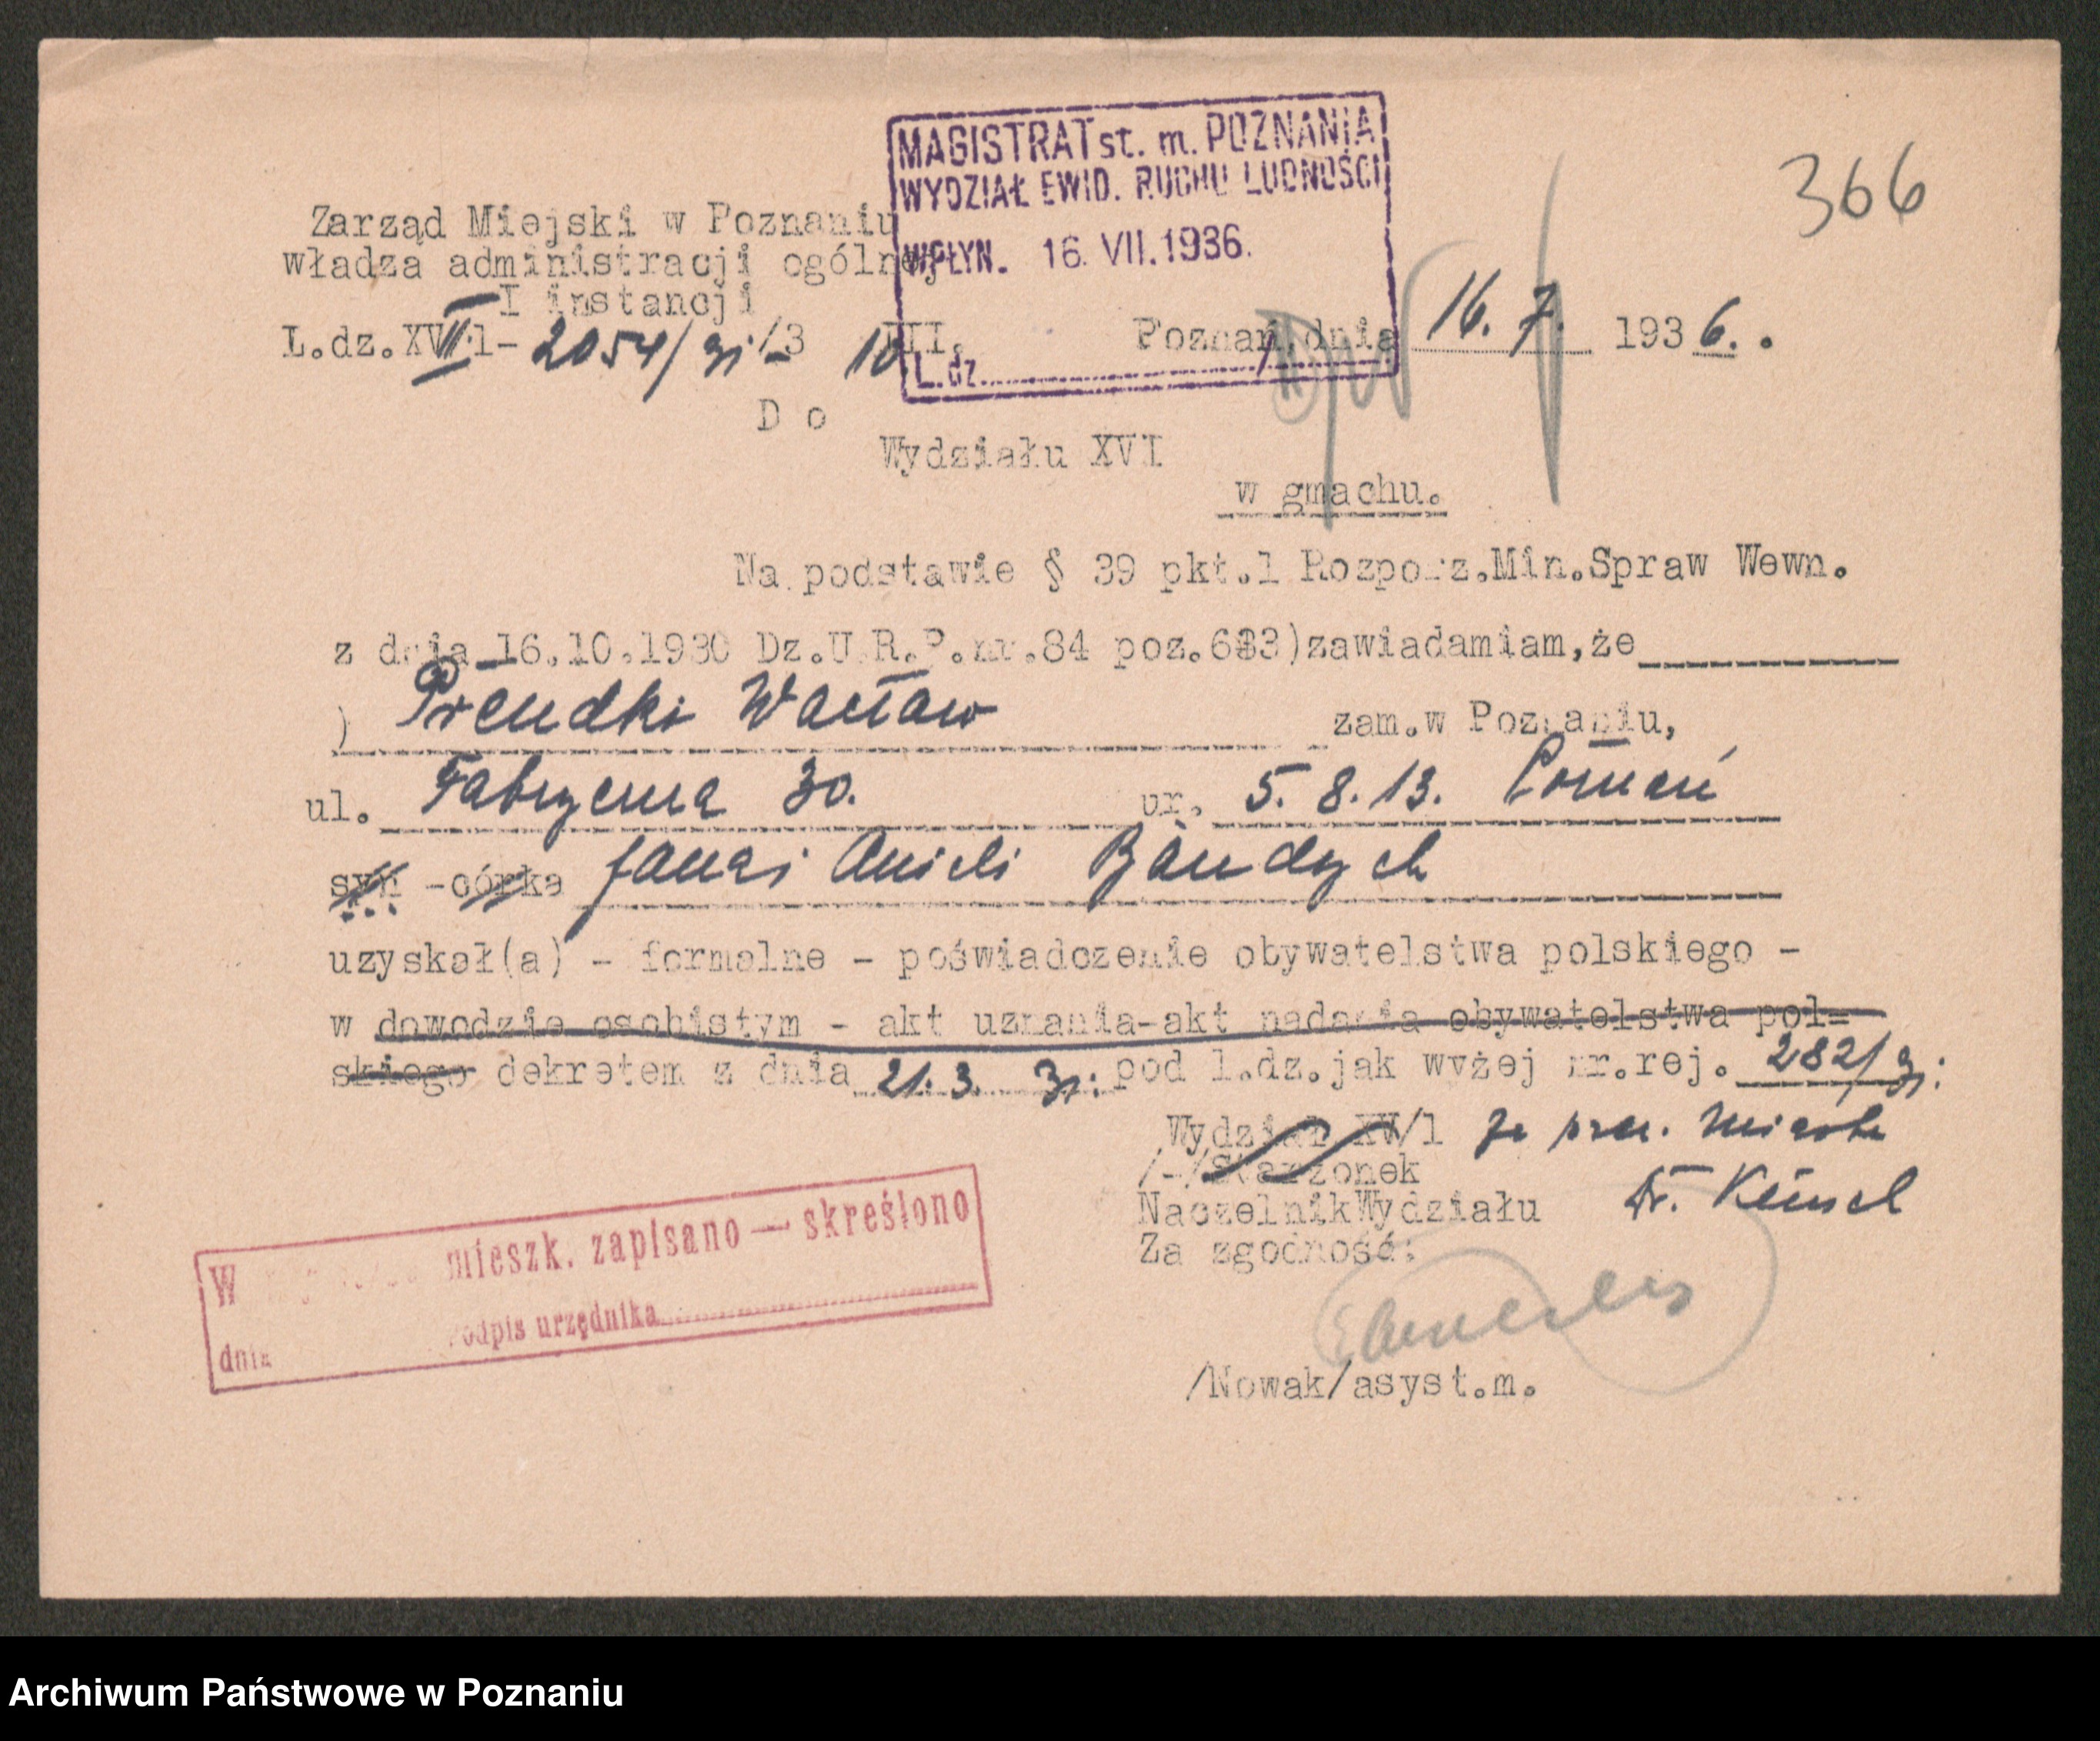 366
MAGISTRAT st. m. POZNANIA
WYDZIAŁ EWID. RUCHU LUDNOŚCI
WPŁYN. 16. VII. 1936.
L. dz.
Zarząd Miejski w Poznaniu
władza administracji ogólnej
I instancji
L.dz.XVII.1- 2054/31 /3 10 III.
Poznań, dnia 16. 7. 1936. .
D o
Wydziału XVI
w gmachu.
Na podstawie § 39 pkt.1 Rozporz.Min.Spraw Wewn.
z dnia 16.10.1930 Dz.U.R.P.nr.84 poz.633)zawiadamiam,że
) Prendki Wacław zam.w Poznaniu,
ul. Fabryczna 30. ur. 5. 8. 13. Poznań
syn -córka Jana i Anieli
uzyskał(a) - formalne - poświadczenie obywatelstwa polskiego -
w dowodzie osobistym - akt uznania-akt nadania obywatelstwa pol=
skiego dekretem z dnia 21.3. 31. pod l.dz.jak wyżej nr.rej. 282/31.
Wydział XV/1 Za prez. miasta
/-/Starzonek
Naczelnik Wydziału Dr.
Za zgodność:
/Nowak/asyst.m.
W mieszk. zapisano — skreślono
dnia podpis urzędnika
Archiwum Państwowe w Poznaniu